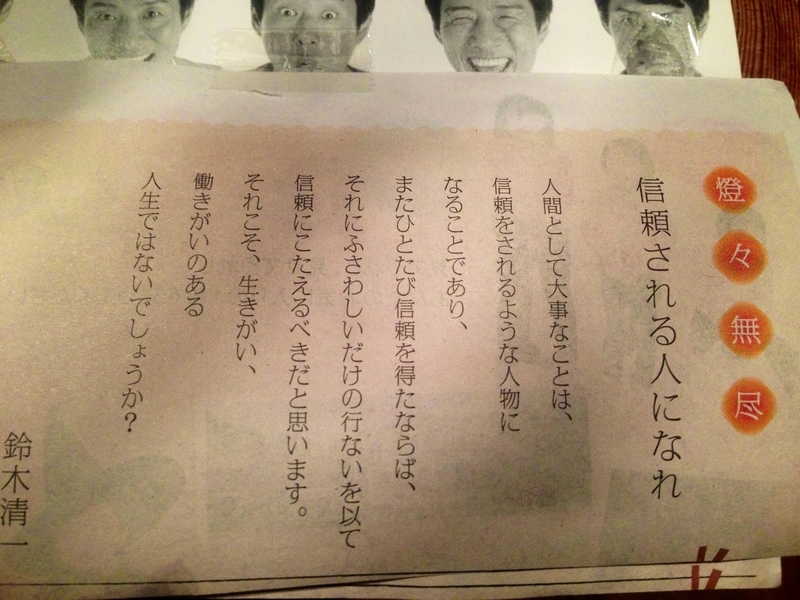 燈々無尽
信頼される人になれ
人間として大事なことは、
信頼をされるような人物に
なることであり、
またひとたび信頼を得たならば、
それにふさわしいだけの行ないを以て
信頼にこたえるべきだと思います。
それこそ、生きがい、
働きがいのある
人生ではないでしょうか？
鈴木清一